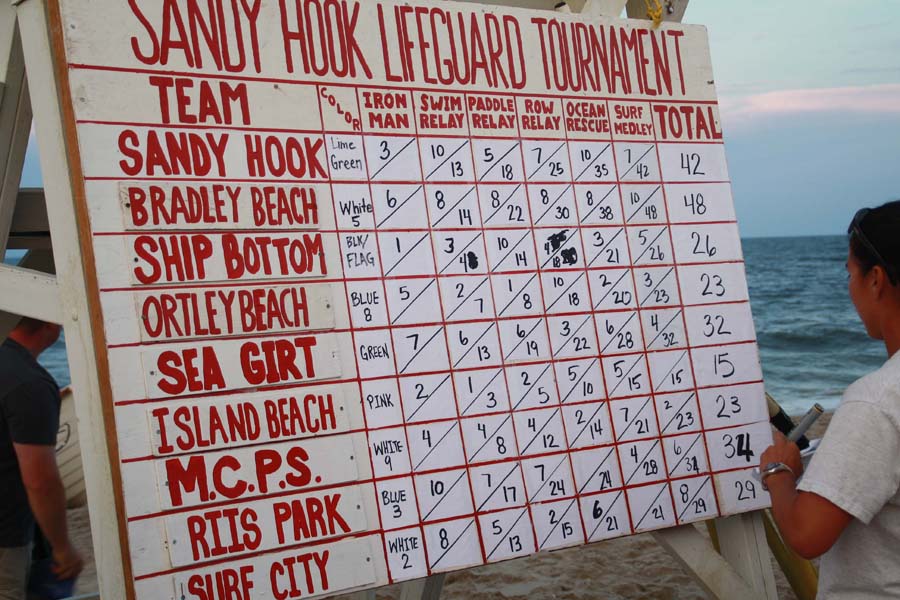 SANDY HOOK LIFEGUARD TOURNAMENT
TEAM COLOR IRON MAN SWIM RELAY PADDLE RELAY ROW RELAY OCEAN RESCUE SURF MEDLEY TOTAL
SANDY HOOK Lime Green 3/ 10/13 5/18 7/25 10/35 7/42 42
BRADLEY BEACH White 5 6/ 8/14 8/22 8/30 8/38 10/48 48
SHIP BOTTOM BLK/FLAG 1/ 3/4 10/14 4/18 3/21 5/26 26
ORTLEY BEACH BLUE 8 5/ 2/7 1/8 10/18 2/20 3/23 23
SEA GIRT GREEN 7/ 6/13 6/19 3/22 6/28 4/32 32
ISLAND BEACH PINK 2/ 1/3 2/5 5/10 5/15 /15 15
M.C.P.S. WHITE 9 4/ 4/8 4/12 2/14 7/21 2/23 23
RIIS PARK BLUE 3 10/ 7/17 7/24 /24 4/28 6/34 34
SURF CITY WHITE 2 8/ 5/13 2/15 6/21 /21 8/29 29